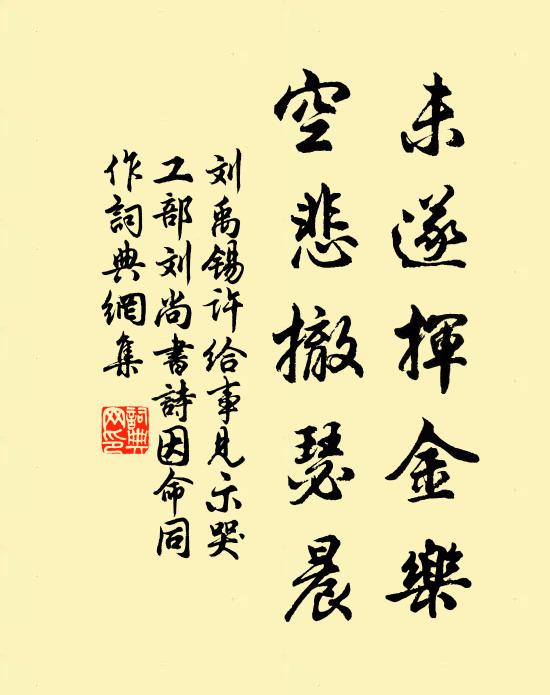 未遂揮金樂
空悲撤瑟晨
刘禹锡许给事見示哭
工部刘尚書詩因命同
作詞典網集
詞典
网印